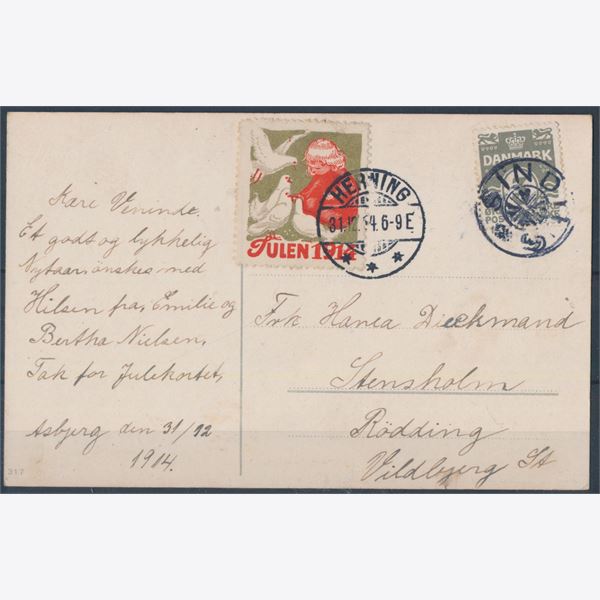 Kære Veninde.
Et godt og lykkelig
Nytaar ønskes med
Hilsen fra, Emilie og
Bertha Nielsen.
Tak for Julekortet,
Asbjerg den 31/12
1914.
317
JULEN 1914
HERNING
31.12.14. 6-9 E
DANMARK
SIND
Frk Hanea Dieckmand
Stensholm
Rödding
Vildbjerg St